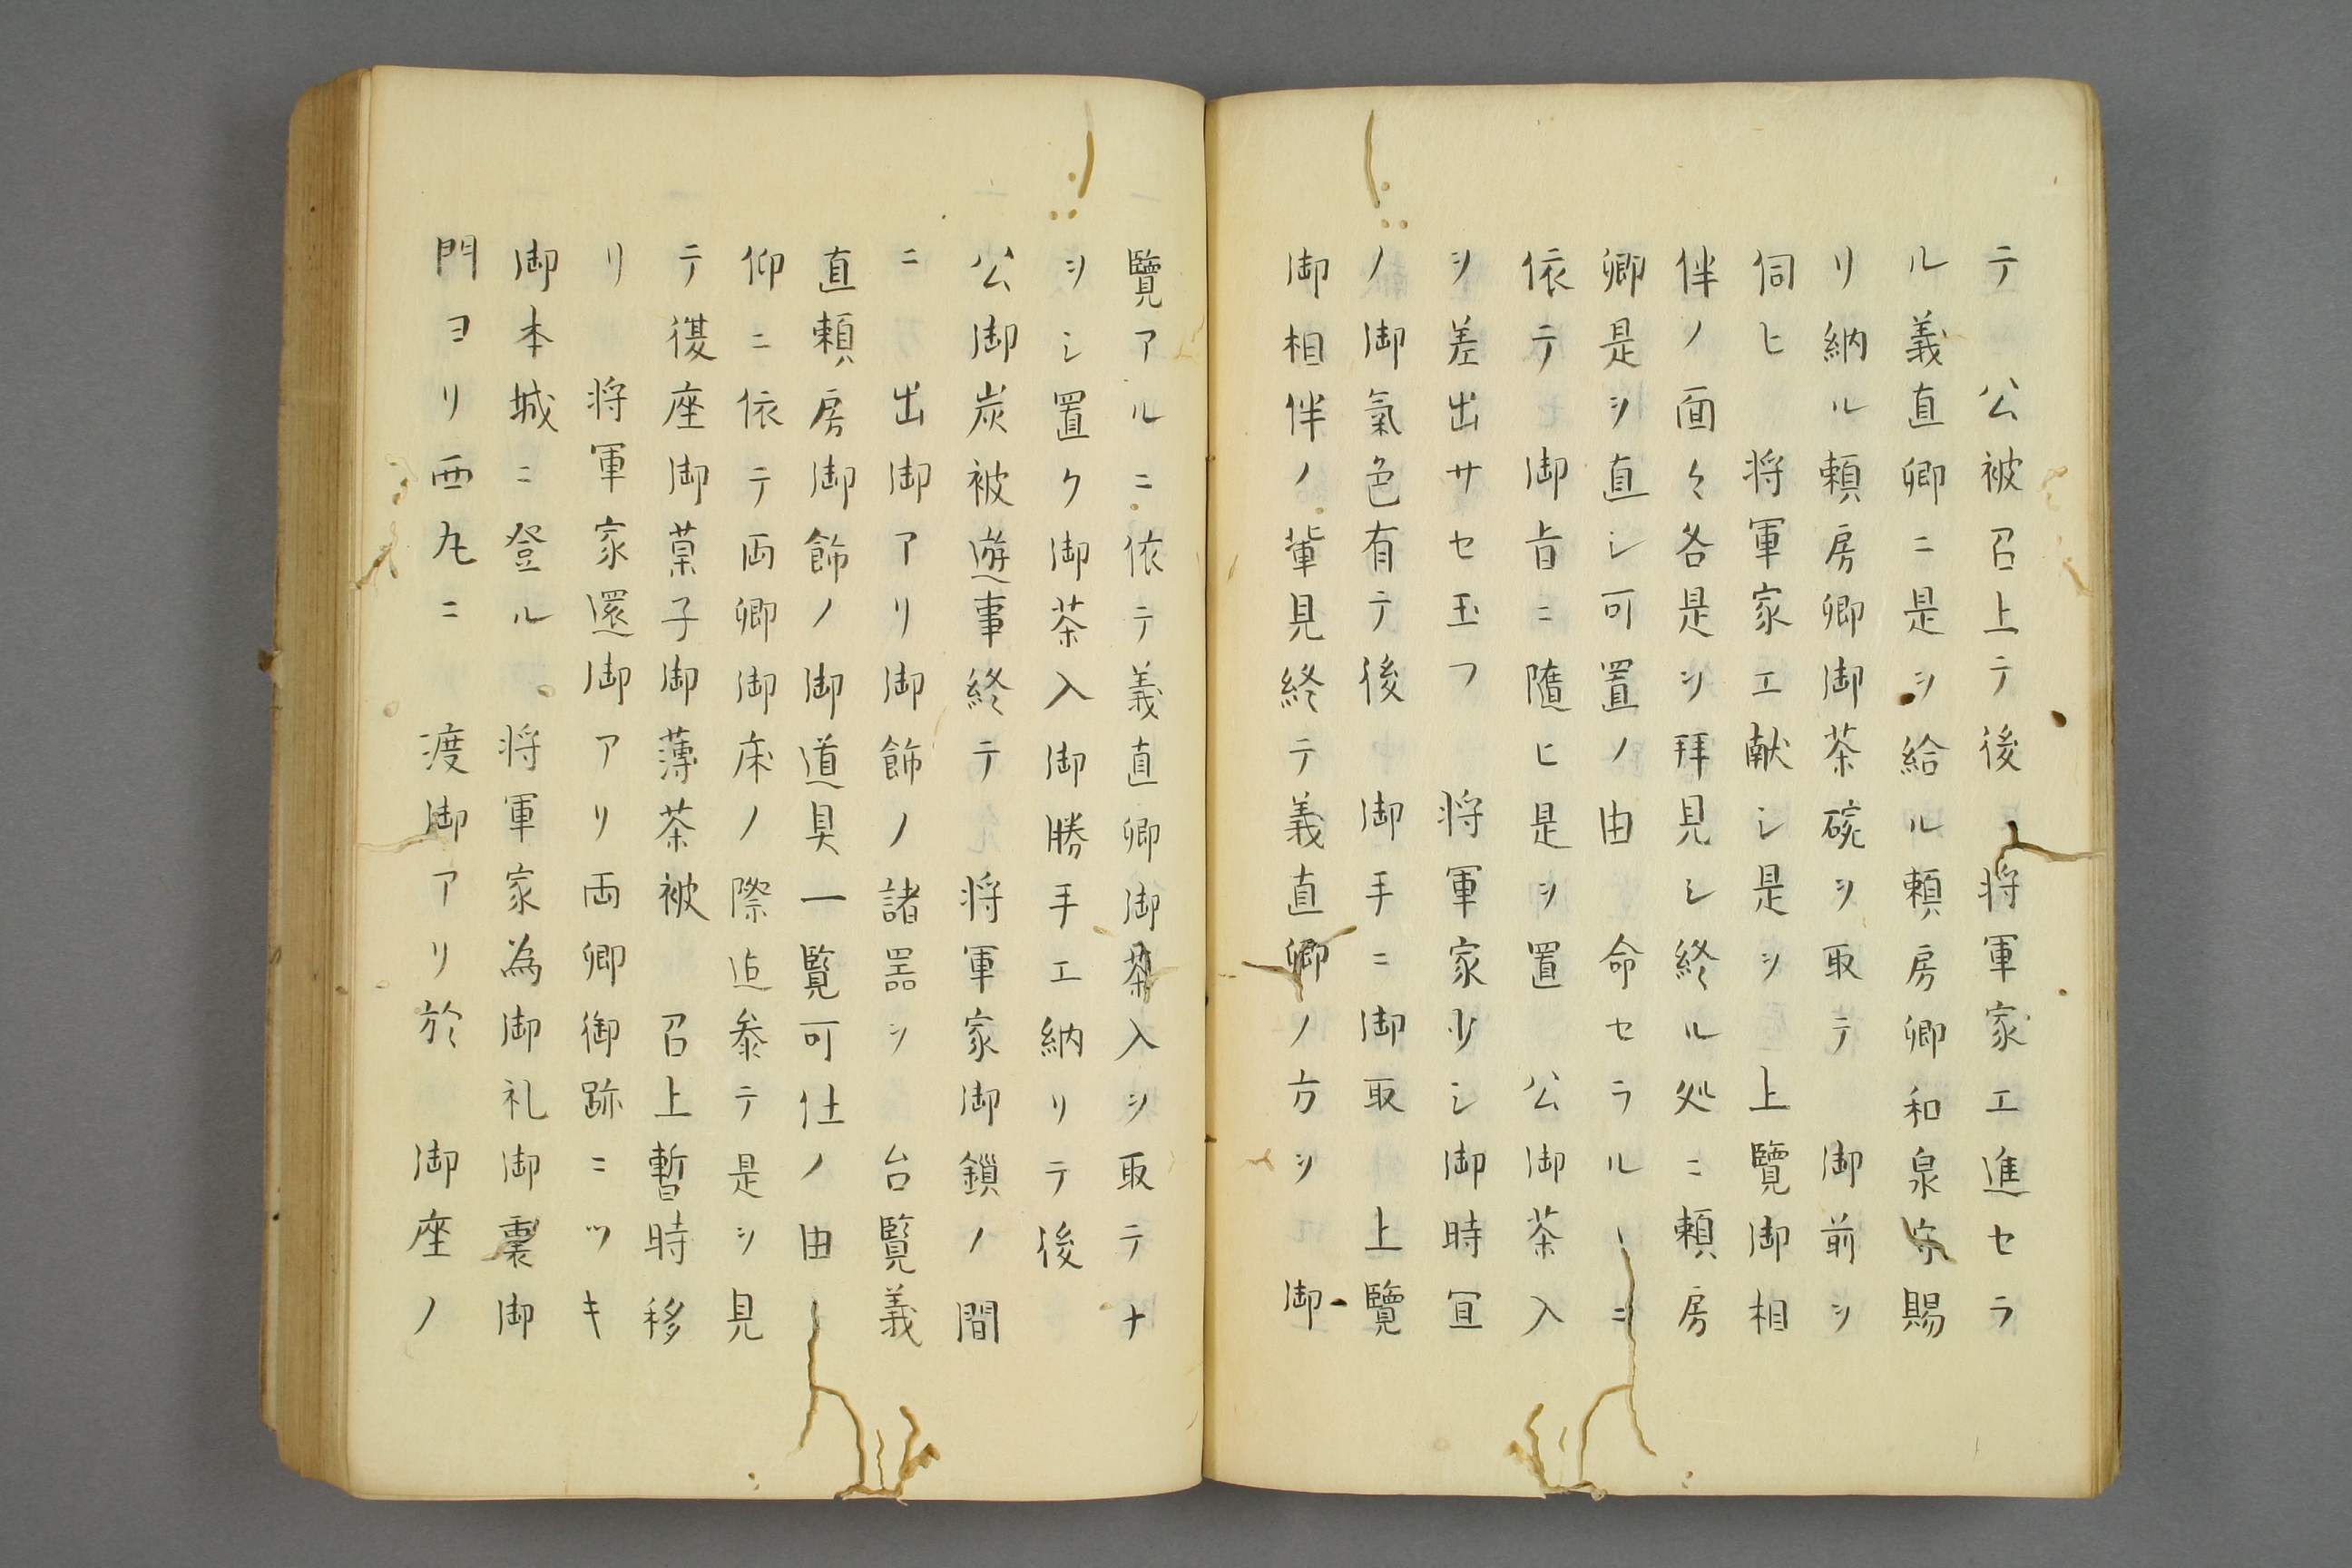 テ　公被召上テ後　将軍家エ進セラ
ル義直卿ニ是ヲ給ル頼房卿和泉守賜
リ納ル頼房卿御茶碗ヲ取テ　御前ヲ
伺ヒ　将軍家エ献シ是ヲ　上覽御相
伴ノ面々各是ヲ拜見シ終ル処ニ頼房
卿是ヲ直シ可置ノ由　命セラルヽニ
依テ　御旨ニ隨ヒ是ヲ置　公御茶入
ヲ差出サセ玉フ　将軍家少シ御時宜
ノ御氣色有テ後　御手ニ御取　上覽
御相伴ノ輩見終テ義直卿ノ方ヲ　御
覽アルニ依テ義直卿御茶入ヲ取テナ
ヲシ置ク御茶入御勝手エ納リテ後
公御炭被遊事終テ　将軍家御鎖ノ間
ニ　出御アリ御飾ノ諸器ヲ　台覧義
直頼房御飾ノ御道具一覧可仕ノ由
仰ニ依テ両卿御床ノ際迠参テ是ヲ見
テ復座御菓子御薄茶被　召上暫時移
リ　将軍家還御アリ両卿御跡ニツキ
御本城ニ登ル　将軍家為御礼御裏御
門ヨリ西丸ニ　渡御アリ於　御座ノ